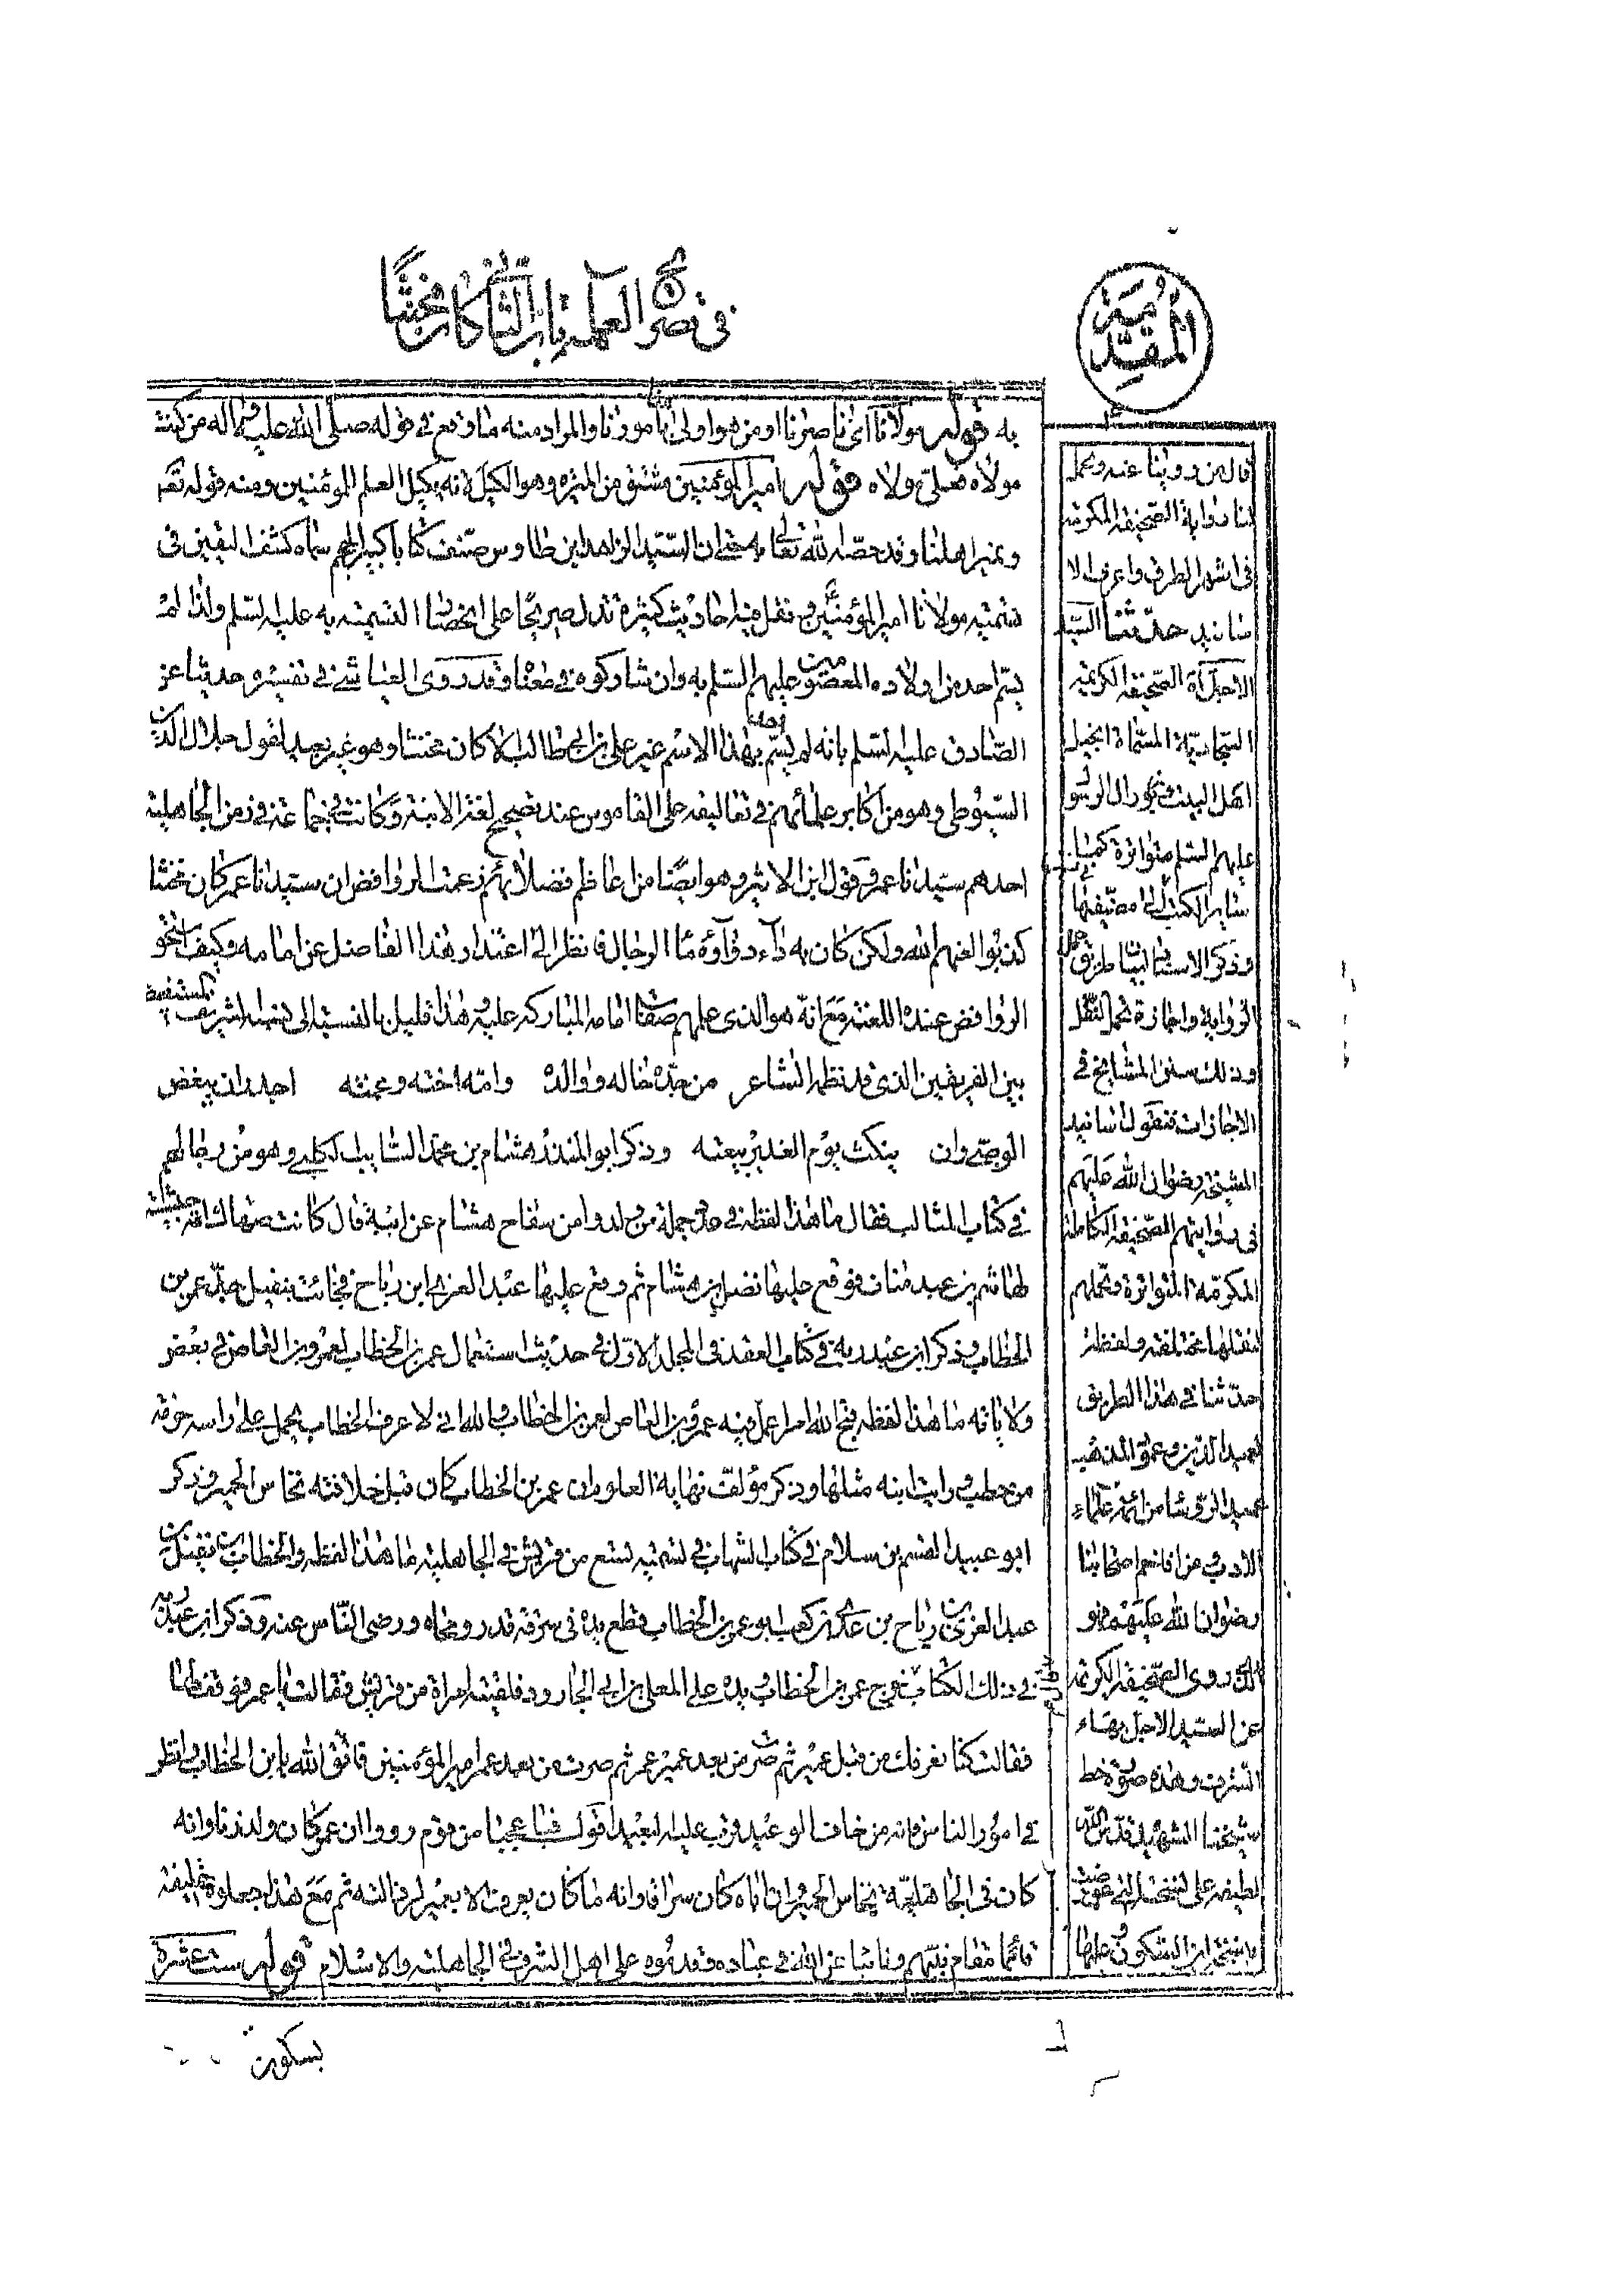 في تصريح العامة بان الثاني كان مخنثا
المقدمة
به قوله مولانا اي ناصرنا او من هو اولى بنا بامورنا والمراد منه ما وقع في قوله صلى الله عليه واله من كنت
مولاه فعلي مولاه قوله امير المؤمنين مشتق من الميره وهو الكيل لانه يكيل العلم للمؤمنين ومنه قوله تعم
ونمير اهلنا وقد خصه الله تعالى به حتى ان السيد الزاهد ابن طاوس صنف كتابا كبير الحجم سماه كشف اليقين في
تسمية مولانا امير المؤمنين ونقل فيه احاديث كثيرة تدل صريحا على اختصاص التسمية به عليه السلم ولذا لم
يسم احد من اولاده المعصومين عليهم السلم به وان شاركوه في معناه وقد روى العياشي في تفسيره حديثا عن
الصادق عليه السلم بانه لم يسم بهذا الاسم غير علي بن ابي طالب الا كان مخنثا وهو غير بعيد لقول جلال الدين
السيوطي وهو من اكابر علمائهم في تعاليقه على القاموس عند تصحيح لغة الابنة وكانت في جماعة في زمن الجاهلية
احدهم سيدنا عمر وقول ابن الاثير وهو ايضا من اعاظم فضلائهم زعمت الروافض ان سيدنا عمر كان مخنثا
كذبوا لعنهم الله ولكن كان به داء دواؤه ماء الرجال فانظر الى اعتذار هذا الفاضل عن امامه وكيف استحقوا
الروافض عنده اللعنة مع انه هو الذي علمهم صفات امامه المباركة عليه وهذا قليل بالنسبة الى نسبه الشريف
بين الفريقين الذي قد نظمه الشاعر من جده خاله ووالده وامه اخته وعمته اجدر ان يبغض
الوصي وان ينكث يوم الغدير بيعته وذكر ابو المنذر هشام بن محمد السائب الكلبي وهو من رجالهم
في كتاب المثالب فقال ما هذا لفظه في جملة من ولدوا من سفاح هشام عن ابيه قال كانت صهاك امة حبشية
لهاشم بن عبد مناف فوقع عليها نضل بن هشام ثم وقع عليها عبد العزى ابن رياح فجائت بنفيل جد عمر بن
الخطاب وذكر ابن عبد ربه في كتاب العقد في المجلد الاول في حديث استعمال عمر بن الخطاب لعمرو بن العاص في بعض
ولاياته ما هذا لفظه قبح الله امرا عمل فيه عمرو بن العاص لعمر بن الخطاب والله اني لاعرف الخطاب يحمل على راسه حزمة
من حطب وابنه مثلها وذكر مؤلف نهاية ان عمر بن الخطاب كان قبل خلافته نخاس الحمير وذكر
ابو عبيد القسم بن سلام في كتاب الشهاب في تسميه من قريش في الجاهلية ما هذا لفظه والخطاب بن نفيل بن
عبد العزى بن رياح بن عدي بن كعب ابو عمر بن الخطاب قطع يده في سرقة قدر ومحاه ورضى الناس عنه وذكر ابن عبد ربه
في ذلك الكتاب خرج عمر بن الخطاب ويده على المعلى بن ابي الجارود فلقيته امراة من قريش فقالت يا عمر فوقف لها
فقالت كنا نعرفك من قبل عمير ثم صرت من بعد عمير عمر ثم صرت من بعد عمر امير المؤمنين فاتق الله يا بن الخطاب وانظر
في امور الناس فانه من خاف الوعيد قرب عليه البعيد اقول فيا عجبا من قوم رووا ان عمر كان ولد زنا وانه
كان في الجاهلية نخاس الحمير وان اباه كان سراقا وانه ما كان يعرف الا بعمير لرذالته ثم مع هذا جعلوه خليفة
قائما مقام نبيهم ونائبا عن الله في عباده وقدموه على اهل الشرف في الجاهلية والاسلام قوله ست عشرة
قال من روينا عنه وتحمل
لنا رواية الصحيفة المكرمة
في اشهر الطرق واعرف الا
سانيد حدثنا السيد
الاجل اه الصحيفة الكريمة
السجادية المسماة انجيل
اهل البيت وزبور ال الرسول
عليهم السلم متواترة كما
ساير الكتب الى مصنفيها
وذكر الاسناد لبيان طريق
الرواية واجازة تحمل النقل
وذلك سنن المشايخ في
الاجازات فنقول اسانيد
المشيخة رضوان الله عليهم
في روايتهم الصحيفة الكاملة
المكرمة المتواترة وتحملهم
لنقلها مختلفة ولفظة
حدثنا في هذا الطريق
لعميد الدين وعمود المذهب
عميد الرؤسا من ائمة علماء
الادب من افاخم اصحابنا
رضوان الله عليهم فهو
الذي روى الصحيفة الكريمة
عن السيد الاجل بهاء
الشرف وهذه صورة خط
شيخنا الشهيد قدس الله
لطيفه على نسخته التي عورضت
بنسخة ابن السكون عليها
بسكون